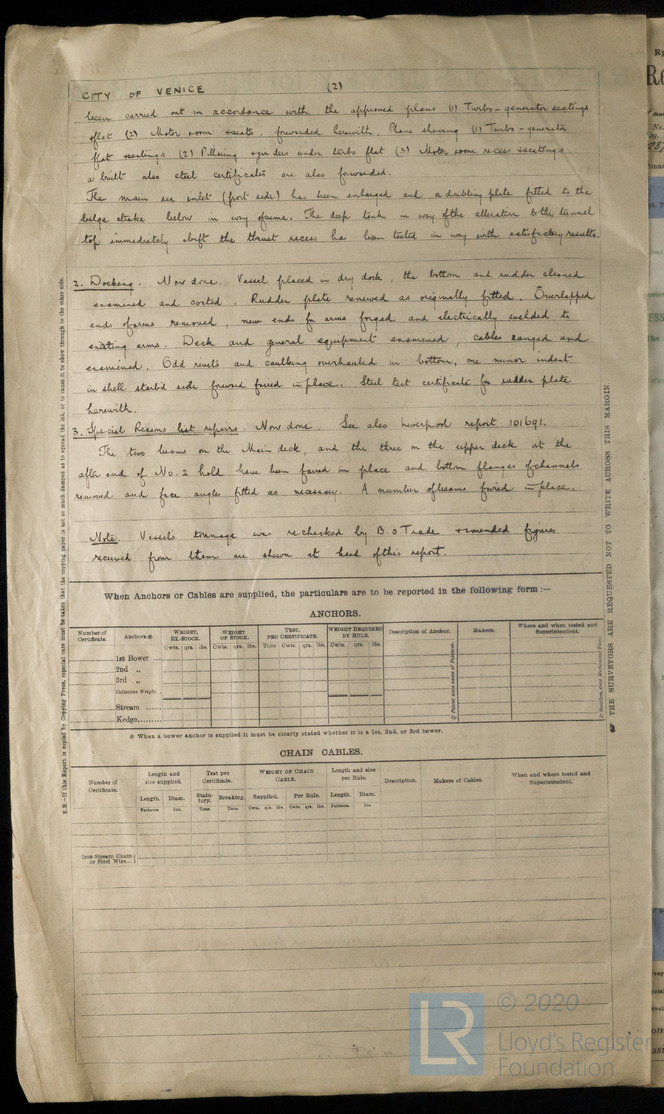 CITY OF VENICE (2)
been carried out in accordance with the approved plans (1) Turbo-generator seatings
flat (2) Motor room seats, forwarded herewith. Plans showing (1) Turbo-generator
flat seatings (2) Pillaring girders under turbo flat (3) Motor room recess seatings
as built also steel certificates are also forwarded.
The main sea inlet (port side) has been enlarged and a doubling plate fitted to the
bilge strake below in way of same. The deep tank in way of the alteration to the tunnel
top immediately abaft the thrust recess has been tested in way with satisfactory results.
2. Docking. Now done. Vessel placed in dry dock, the bottom and rudder cleaned
examined and coated. Rudder plate renewed as originally fitted. Overlapped
ends of arms removed, new ends for arms forged and electrically welded to
existing arms. Deck and general equipment examined, cables ranged and
examined. Odd rivets and caulking overhauled in bottom, one minor indent
in shell starb'd side forward faired in place. Steel test certificate for rudder plate
herewith.
3. Special Reasons list repairs. Now done. See also Liverpool report 101691.
The two beams on the Main deck, and the three on the upper deck at the
after end of No. 2 hold have been faired in place and bottom flanges of channels
removed and face angles fitted as necessary. A number of beams faired in place.
Note. Vessels tonnage was re-checked by B.o Trade & amended figures
received from them are shewn at head of this report.
When Anchors or Cables are supplied, the particulars are to be reported in the following form :—
ANCHORS.
Number of Certificate. Anchors.※ WEIGHT, EX. STOCK. WEIGHT OF STOCK. TEST, PER CERTIFICATE. WEIGHT REQUIRED BY RULE. Description of Anchor. Makers. Where and when tested and Superintendent.
Cwts. qrs. lbs. Cwts. qrs. lbs. Tons Cwts. qrs. lbs. Cwts. qrs. lbs.
1st Bower ...
2nd „
3rd „
Collective Weight.
Stream ......
Kedge.........
※ When a bower anchor is supplied it must be clearly stated whether it is a 1st, 2nd, or 3rd bower.
CHAIN CABLES.
Number of Certificate. Length and size supplied. Test per Certificate. WEIGHT OF CHAIN CABLE. Length and size per Rule. Description. Makers of Cables. When and where tested and Superintendent.
Length. Diam. Statutory. Breaking. Supplied. Per Rule. Length. Diam.
Fathoms. Ins. Tons. Tons. Cwts. qrs. lbs. Cwts. qrs. lbs. Fathoms. Ins.
Iron Stream Chain
or Steel Wire...
N.B.—If this Report is copied by Copying Press, especial care must be taken that the copying paper is not so much damped as to spread the ink, or to cause it to show through to the other side.
THE SURVEYORS ARE REQUESTED NOT TO WRITE ACROSS THIS MARGIN.
LR
© 2020
Lloyd's Register
Foundation